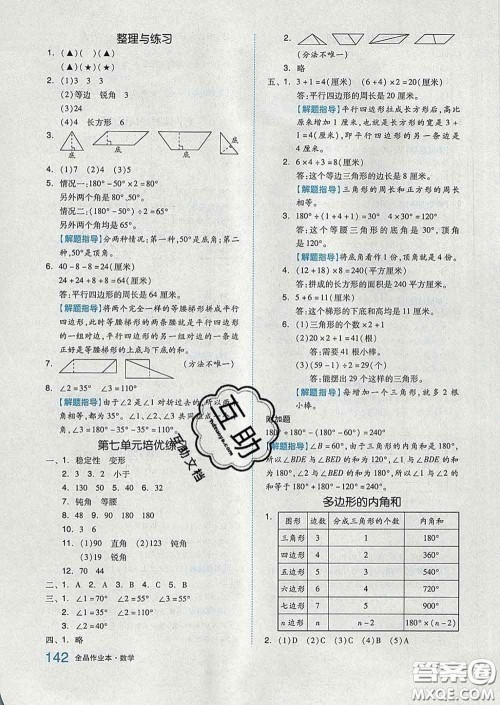 整理与练习
1. (▲)(▲)( )(▲)
(▲)(★)(▲)(★)
2. (1)3 3 3
(2)等边 锐角 3
(3)24
(4)4 长方形 6
3.
底
底
底
底
4. (1)7 (2)4 (3)5
5. 情况一:180°-50°×2=80°
另外两个角是50°、80°。
情况二:(180°-50°)÷2=65°
另外两个角是65°、65°。
【解题指导】分两种情况:第一种,50°是底角;第二种,50°是顶角。
6. 40-8-8=24(厘米)
(24+8)×2=64(厘米)
答:平行四边形的周长是64厘米。
【解题指导】将两个完全一样的等腰梯形拼成平行四边形,一组对边就是等腰梯形的腰,所以周长减去两条腰的和就是等腰梯形的上底与下底的和。
7. (分法不唯一)
8. ∠2=35° ∠3=110°
【解题指导】由于∠2是∠1对折过去的,
第七单元培优练
一、1. 稳定性 变形
2. 3 5 6 8
4. 130 50 5. 40 6. 32
7. 钝角 等腰
8. 4 9. 12 10. 9 18
11. (1)90 直角 (2)123 钝角
(3)19 锐角
12. 70 44
二、1. A 2. D 3. C 4. D 5. B
三、1. ∠1=70° ∠2=55° ∠3=55°
2. ∠1=75° ∠2=110°
四、1. 略
142 全品作业本·数学
2.
(分法不唯一)
3. 略
五、1. 3+1=4(厘米) (6+4)×2=20(厘米)
答:平行四边形的周长是20厘米。
【解题指导】平行四边形拉成长方形后,高比原来增加1厘米,所以拉成的长方形的宽是3+1=4(厘米),即平行四边形的另一条边是4厘米。
2. 6×4÷3=8(厘米)
答:这个等边三角形的边长是8厘米。
【解题指导】三角形的周长和正方形的周长相等。
3. 180°÷(1+4+1)=30° 30°×4=120°
答:这个等腰三角形的底角是30°,顶角是120°。
【解题指导】将底角看作1份,顶角就是4份。
4. (12+18)×2=60(厘米)
(12+24)×2=72(厘米)
答:拼成的长方形的周长是60厘米。
5. 5+6=11(厘米)
答:这个梯形的下底和高均是11厘米。
6. (1)三角形的个数×2+1
(2)20×2+1=41(根)
答:需要41根小棒。
(3)(59-1)÷2=29(个)
答:能摆出29个这样的三角形。
【解题指导】每增加一个三角形,就多2根小棒。
附加题
180°+180°-(180°-60°)=240°
多边形的内角和
1.
图形 边数 分成三角形的个数 内角和
三角形 3 1 180°
四边形 4 2 360°
五边形 5 3 540°
六边形 6 4 720°
七边形 7 5 900°
n边形 n n-2 180°×(n-2)
2. (1)D (2)C (3)A (4)D
互助
互助文档
答案圈
MXQE.COM